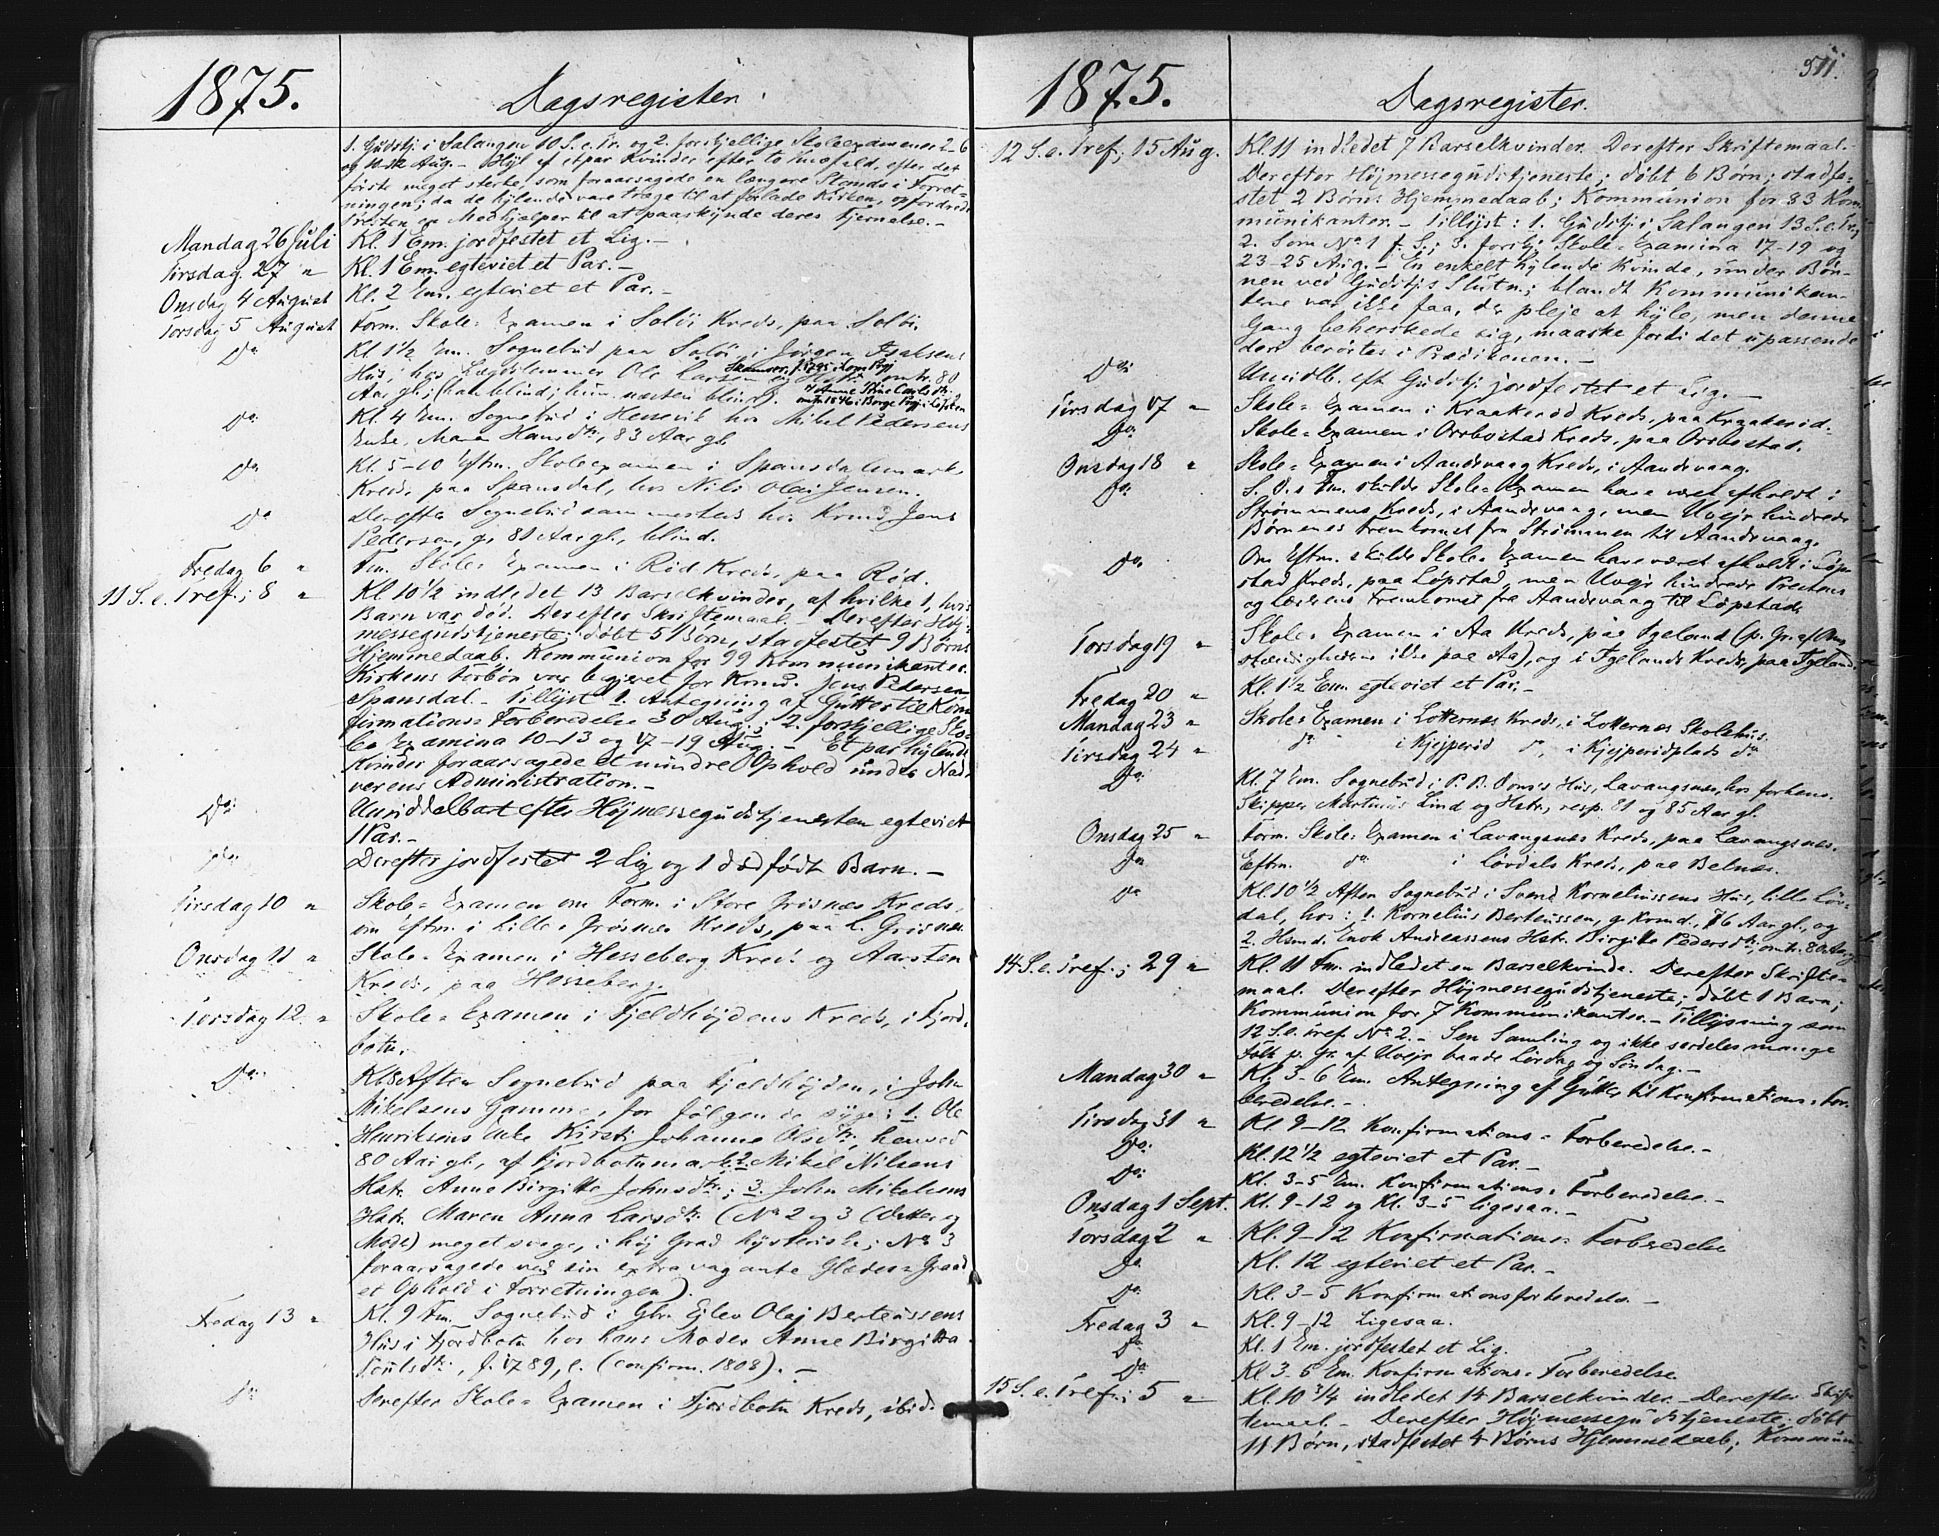 1875.
Dagsregister.
1. Gudstj. i Salangen 10 S. e. Tr. og 2. forskjellige Skoleexamener 2-6
og 10-12 Aug. - Hyl af et par Kvinder efter to Knæfald, efter det
første meget sterke, som foraarsagede en længere Stands i Forret-
ningen; da de hylende vare trage til at forlade Kirken, opfordrede
Presten en Medhjælper til at paaskynde deres Fjernelse. -
Mandag 26 Juli Kl. 1 Em. jordfestet et Lig. -
Tirsdag 27 " Kl. 1 Em. egteviet et Par. -
Onsdag 4 August Kl. 2 Em. egteviet et Par. -
Torsdag 5 August Form. Skole-Examen i Soløi Kreds, paa Soløi.
Do Kl. 1½ Em. Sognebud paa Soløi i Jørgen Isaksens
Hus, hos Lægdslemmer Ole Larsen omtr. 80
Aar gl. (han blind; hun næsten blind).
Do Kl. 4 Em. Sognebud i Hessevik hos Mikel Pedersens
Enke, Maren Hansdtr., 83 Aar gl.
Do Kl. 5-10 Eftm. Skoleexamen i Spansdalsmark
Kreds, paa Spansdal, hos Nils Olai Jensen.
Do Derefter Sognebud sammesteds hos Kmd. Jens
Pedersen, g. 80 Aar gl., blind.
Fredag 6 " Fm. Skole-Examen i Rød Kreds, paa Rød.
11 S. e. Tref.; 8 " Kl. 10½ indledet 13 Barselkvinder, af hvilke 1, hvis
Barn var død. Derefter Skriftemaal. - Derefter Høj-
messegudstjeneste; døbt 5 Børn, stadfestet 9 Børns
Hjemmedaab. Kommunion for 99 Kommunikanter.
Kirkens Forbøn var begjeret for Kmd. Jens Pedersen
Spansdal. - Tillyst 1. Antegning af Gutter til Kon-
firmations Forberedelse 30 Aug.; 2. forskjellige Sko-
le Examina 10-13 og 17-19 Aug. - Et par hylende
Kvinder foraarsagede et mindre Ophold under Nad-
verens Administration. -
Do: Umiddelbart efter Højmessegudstjenesten egteviet
1 Par. -
Do Derefter jordfestet 2 Lig og 1 dødfødt Barn. -
Tirsdag 10 " Skole-Examen om Form. i Store Grisnæs Kreds,
om Eftm. i Lille Grisnæs Kreds, paa L. Grisnæs.
Onsdag 11 " Skole-Examen i Hesseberg Kreds og Aarsten
Kreds, paa Hesseberg.
Torsdag 12 " Skole-Examen i Fjeldhøjdens Kreds, i Fjord-
botn.
Do Kl. 8 Aften Sognebud paa Fjeldhøjden, i John
Mikelsens Gamme, for følgende syge: 1. Ole
Henriksens Enke Kirsti Johanne Olsdtr., henved
80 Aar gl., af Fjordbotnmark. 2. Mikel Nilsens
Hstr. Anne Birgitte Johnsdtr.; 3. John Mikelsens
Hstr. Maren Anna Larsdtr. (No 2 og 3 (Datter og
Moder) meget svage, i høj Grad hysteriske; No 3
foraarsagede ved sin extravagante Glædes-Graad
et Ophold i Forretningen).
Fredag 13 " Kl. 9 Fm. Sognebud i Gbr. Ejlev Olaj Berteussens
Hus i Fjordbotn hos hans Moder Anne Birgitta
Poulsdtr., f. 1789, (confirm. 1808). -
Do Derefter Skole-Examen i Fjordbotn Kreds, ibid.
1875.
Dagsregister.
511.
12 S. e. Tref.; 15 Aug. Kl. 11 indledet 7 Barselkvinder. Derefter Skriftemaal.
Derefter Højmessegudstjeneste; døbt 6 Børn; stadfe-
stet 2 Børns Hjemmedaab; Kommunion for 83 Kom-
munikanter. - Tillyst: 1. Gudstj. i Salangen 13 S. e. Tr.;
2. Som No 1 f. S.; 3. forskj. Skole-Examina 17-19 og
23-25 Aug. - En enkelt hylende Kvinde, under Bøn-
nen ved Gudstjs Slutn.; blandt Kommunikan-
terne var ikke faa, der pleje at hyle, men denne
Gang beherskede sig, maaske fordi det upassende
deri berørtes i Prædikenen. -
Do: Umidlb. eft. Gudstj. jordfestet et Lig. -
Tirsdag 17 " Skole-Examen i Kraakerød Kreds, paa Kraakerød.
Do Skole-Examen i Orrbostad Kreds, paa Orrbostad.
Onsdag 18 " Skole-Examen i Aandsvaag Kreds, i Aandsvaag.
Do S. D. s Em. skulde Skole-Examen have været afholdt i
Strømmens Kreds, i Aandsvaag, men Uvejr hindrede
Børnenes Fremkomst fra Strømmen til Aandsvaag.
Do Om Eftm. skulde Skole-Examen have været afholdt i Løp-
stad Kreds, paa Løpstad, men Uvejr hindrede Prestens
og Lærerens Fremkomst fra Aandsvaag til Løpstad.
Torsdag 19 " Skole-Examen i Aa Kreds, paa Tgeland (p. Gr. af Om-
stændighederne ikke paa Aa), og i Tgelands Kreds, paa Tgeland.
Fredag 20 " Kl. 1½ Em. egteviet et Par. -
Mandag 23 " Skole-Examen i Lotternæs Kreds, i Lotternæs Skolehus.
Tirsdag 24 " do i Kjejperød do, i Kjejperødplads do
Do Kl. 7 Em. Sognebud i P. B. Hus, Lavangsnæs, hos forhenv.
Skipper Martinus Lind og Hstr., resp. 81 og 85 Aar gl.
Onsdag 25 " Form. Skole-Examen i Lavangsnæs Kreds, paa Lavangsnæs.
Do Eftm. do i Lovdals Kreds, paa Belnæs.
Do Kl. 10½ Aften Sognebud i Svend Korneliussens Hus, lille Løv-
dal, hos: 1. Kornelius Berteussen, g. Kmd., 76 Aar gl., og
2. Hsmd. Enok Andreassens Hstr. Birgitte Pedersdtr., omtr. 80 Aar gl.
14 S. e. Tref.; 29 " Kl. 11 Fm. indledet en Barselkvinde. Derefter Skrifte-
maal. Derefter Højmessegudstjeneste; døbt 1 Barn;
Kommunion for 7 Kommunikanter. - Tillysning som
12 S. e. Tref. No 2. - Sen Samling og ikke særdeles mange
Folk p. Gr. af Uvejr baade Lørdag og Søndag. -
Mandag 30 " Kl. 3-6 Em. Antegning af Gutter til Konfirmations-For-
beredelse. -
Tirsdag 31 " Kl. 9-12 Konfirmations-Forberedelse. -
Do: Kl. 12½ egteviet et Par. -
Do: Kl. 3-5 Em. Konfirmations-Forberedelse. -
Onsdag 1 Sept. Kl. 9-12 og Kl. 3-5 ligesaa. -
Torsdag 2 " Kl. 9-12 Konfirmations-Forberedelse
Do Kl. 12 egteviet et Par. -
Do Kl. 3-5 Konfirmationsforberedelse. -
Fredag 3 " Kl. 9-12 Ligesaa.
Do Kl. 1 Em. jordfestet et Lig.
Do Kl. 3-6 Em. Konfirmations-Forberedelse.
15 S. e. Tref.; 5 " Kl. 10¾ indledet 14 Barselkvinder. - Derefter Skrif-
temaal. - Derefter Højmessegudstjeneste; døbt
11 Børn, stadfestet 4 Børns Hjemmedaab; Kommun-